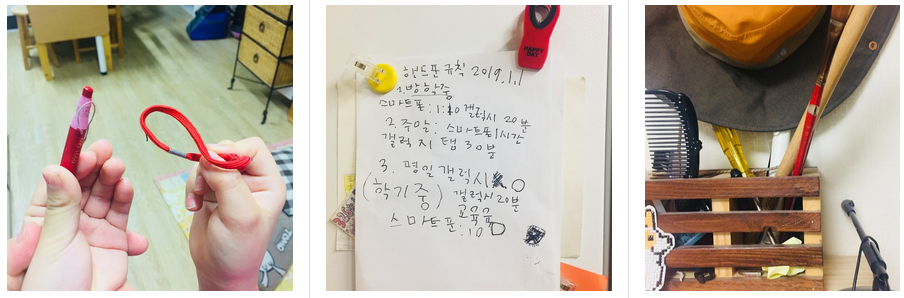 HAPPY DAY
핸드폰 규칙 2019.1.1
1.방학중
스마트폰:1:10 갤럭시 20분
2.주말: 스마트폰1시간
갤럭시 탭 30분
3. 평일 갤럭시 O
(학기중) 갤럭시20분
교육용
스마트폰:10